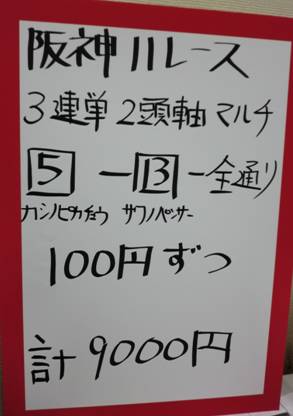 阪神11レース
3連単 2頭軸 マルチ
5 - 13 - 全通り
カシノピカチュウ サワノペッサー
100円ずつ
計9000円